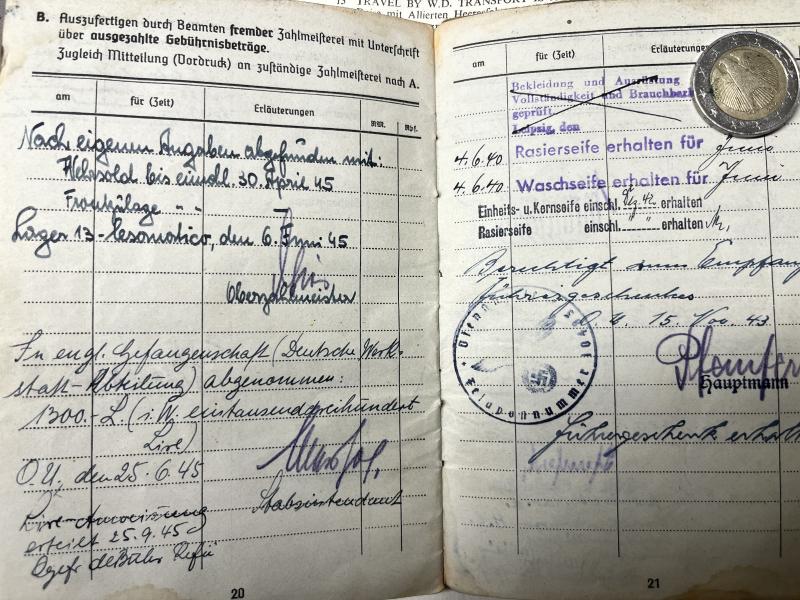 TRAVEL BY W.D. TRANSPORT
mit Allierten
B. Auszufertigen durch Beamten fremder Zahlmeisterei mit Unterschrift
über ausgezahlte Gebührnisbeträge.
Zugleich Mitteilung (Vordruck) an zuständige Zahlmeisterei nach A.
am für (Zeit) Erläuterungen RM. Rpf.
Nach eigenen Angaben abgefunden mit:
Wehrsold bis einschl. 30. April 45
Frontzulage " "
Lager 13 - Cesenatico, den 6. Juni 45
Oberzahlmeister
In engl. Gefangenschaft (Deutsche Werk-
statt-Abteilung) abgenommen:
1300.-L. (i.W. eintausenddreihundert
Lire)
O.U., den 25.6.45
Stabsintendant
Lire-Anweisung
erteilt 25.9.45
20
am für (Zeit) Erläuterungen
Bekleidung und Ausrüstung
Vollständigkeit und Brauchbark
geprüft.
Leipzig, den
4.6.40 Rasierseife erhalten für Juni
4.6.40 Waschseife erhalten für Juni
Einheits- u. Kernseife einschl. Dez. 42 erhalten
Rasierseife einschl. " " erhalten
Berechtigt zum Empfang
Führergeschenkes
O.U. 15. Nov. 43
Hauptmann
Feldpostnummer
Führergeschenk erhalt
21